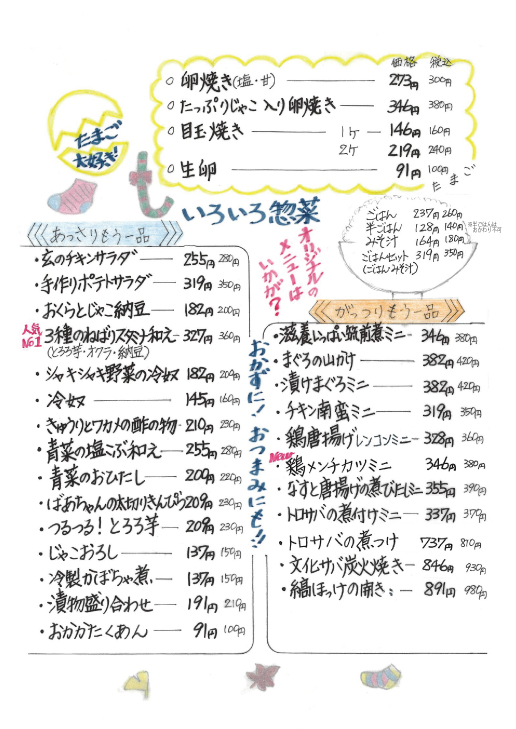 価格 税込
○ 卵焼き(塩・甘) 273円 300円
○ たっぷりじゃこ入り卵焼き 346円 380円
○ 目玉焼き 1ケ 146円 160円
2ケ 219円 240円
○ 生卵 91円 100円
たまご
たまご
大好き!
いろいろ惣菜
オリジナルの
メニューは
いかが?
ごはん 237円 260円
半ごはん 128円 140円
みそ汁 164円 180円
ごはんセット 319円 350円
(ごはん みそ汁)
※半ごはんは
おかわり不可
あっさりもう一品
・玄のチキンサラダ 255円 280円
・手作りポテトサラダ 319円 350円
・おくらとじゃこ納豆 182円 200円
人気
No1
・3種のねばりスタミナ和え 327円 360円
(とろろ芋・オクラ・納豆)
・シャキシャキ野菜の冷奴 182円 200円
・冷奴 145円 160円
・きゅうりとワカメの酢の物 210円 230円
・青菜の塩こぶ和え 255円 280円
・青菜のおひたし 200円 220円
・ばあちゃんの太切りきんぴら 209円 230円
・つるつる!とろろ芋 209円 230円
・じゃこおろし 137円 150円
・冷製かぼちゃ煮 137円 150円
・漬物盛り合わせ 191円 210円
・おかかたくあん 91円 100円
おかずに!おつまみにも!!
がっつりもう一品
・滋養いっぱい筑前煮ミニ 346円 380円
・まぐろの山かけ 382円 420円
・漬けまぐろミニ 382円 420円
・チキン南蛮ミニ 319円 350円
・鶏唐揚げレンコンミニ 328円 360円
New
・鶏メンチカツミニ 346円 380円
・なすと唐揚げの煮びたしミニ 355円 390円
・トロサバの煮付けミニ 337円 370円
・トロサバの煮つけ 737円 810円
・文化サバ炭火焼き 846円 930円
・縞ほっけの開き 891円 980円